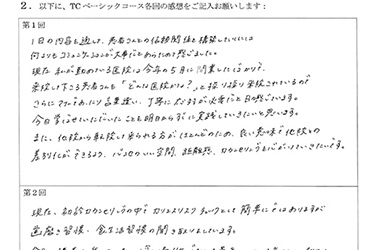 2. 以下に、TCベーシックコース各回の感想をご記入お願いします：
第1回
1日の内容を通して、患者さんとの信頼関係を構築していくには
何よりもコミュニケーションが大事だとあらためて思いました。
現在 私が勤めている医院は今年の5月に開業したばかりで、
来院して下さる患者さんも“どんな医院かな？”と探り探り来院されているので
さらに笑顔であったり言葉遣い、丁寧に応対が必要だと日々思っています。
今日学ばせていただいたことも明日からすぐに実践していきたいと思います。
また、他院から転院して来られる方がほとんどのため、良い意味で他院との
差別化ができるよう、心地のいい空間、距離感、カウンセリングを心がけていきたいです。
第2回
現在、初診カウンセリングの中でカリエスリスクチェックとして簡単にではありますが
歯磨き習慣・食生活習慣の聞き取りをしています。